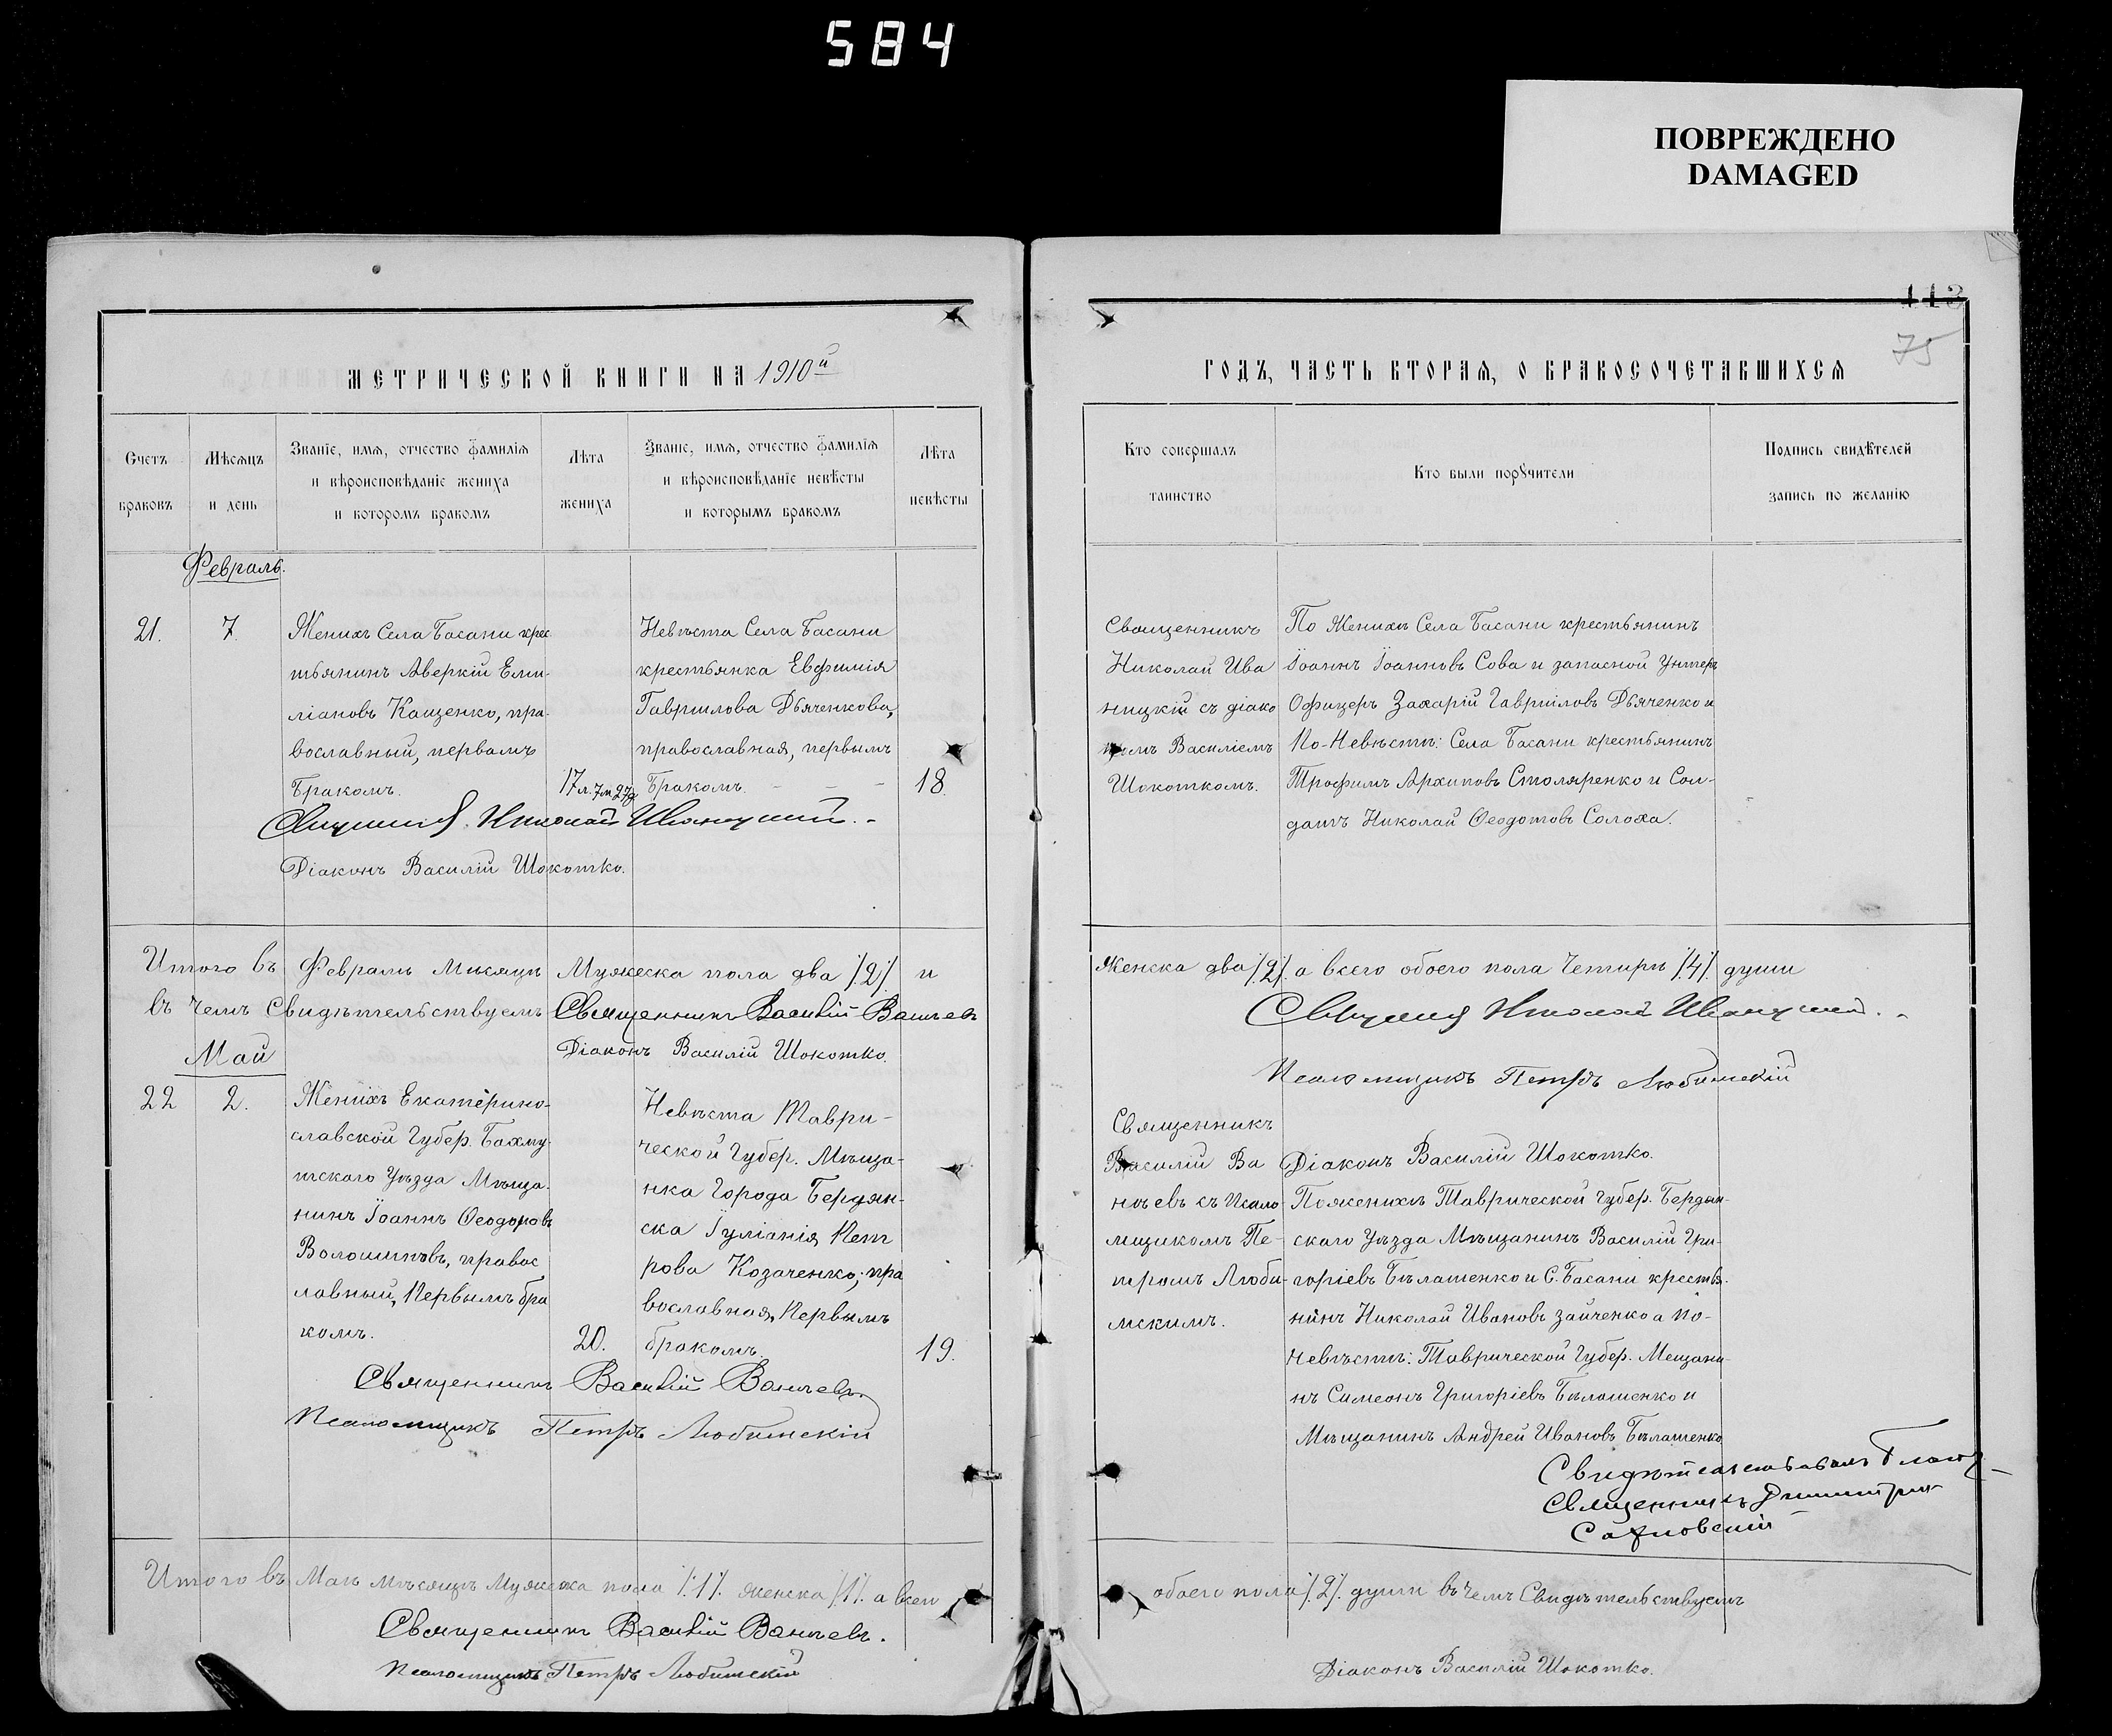 584
ПОВРЕЖДЕНО
DAMAGED
113
75
МЕТРИЧЕСКОЙ КНИГИ НА 1910й
ГОДЪ, ЧАСТЬ ВТОРАЯ, О БРАКОСОЧЕТАВШИХСЯ
Счетъ
браковъ
Мѣсяцъ
и день
Званіе, имя, отчество фамилія
и вѣроисповѣданіе жениха
и которомъ бракомъ
Лѣта
жениха
Званіе, имя, отчество фамилія
и вѣроисповѣданіе невѣсты
и которымъ бракомъ
Лѣта
невѣсты
Кто совершалъ
таинство
Кто были поручители
Подпись свидѣтелей
запись по желанію
Февраль.
21.
7.
Женихъ Села Басани крес
тьянинъ Аверкій Еми-
ліановъ Кащенко, пра-
вославный, первымъ
Бракомъ.
17 л. 7 м. 27 д.
Невѣста Села Басани
крестьянка Евфимія
Гавріилова Дьяченкова,
православная, первымъ
Бракомъ.
18.
Священникъ Николай Иваницкій.
Діаконъ Василій Шокотко.
Священникъ
Николай Ива
ницкій съ діако
номъ Василіемъ
Шокоткомъ.
По Женихѣ Села Басани крестьянинъ
Іоаннъ Іоанновъ Сова и запасной Унтеръ
Офицеръ Захарій Гавріиловъ Дьяченко и
По-Невѣстѣ: Села Басани крестьянинъ
Трофимъ Архиповъ Столяренко и Сол-
датъ Николай Ѳеодотовъ Солоха.
Итого въ Февралѣ Мисяцѣ Мужеска пола два /:2:/ и
Женска два /:2:/ а всего обоего пола Четыри /:4:/ души
въ чемъ Свидѣтельствуемъ Священникъ Василій Ваньевъ
Священникъ Николай Иваницкій.
Діаконъ Василій Шокотко.
Псаломщикъ Петръ Любимскій
Май
22
2.
Женихъ Екатерино-
славской Губер. Бахму-
тскаго Уѣзда Мѣща-
нинъ Іоаннъ Ѳеодоровъ
Волошиновъ, правос
лавный, Первымъ бра
комъ.
20.
Невѣста Таври-
ческой Губер. Мѣща-
нка Города Бердян-
ска Іуліанія Пет
рова Козаченко, пра
вославная, Первымъ
бракомъ.
19.
Священникъ Василій Ваньевъ.
Псаломщикъ Петръ Любимскій
Священникъ
Василій Ва
ньевъ съ Псало-
мщикомъ Пе-
тромъ Люби-
мскимъ.
Діаконъ Василій Шокотко.
По женихѣ Таврической Губер. Бердян-
скаго Уѣзда Мѣщанинъ Василій Гри-
горіевъ Бѣлашенко и С. Басани крестья-
нинъ Николай Ивановъ Зайченко а по-
Невѣстѣ: Таврической Губер. Мещани-
нъ Симеонъ Григоріевъ Бѣлашенко и
Мѣщанинъ Андрей Ивановъ Бѣлашенко
Свидѣтельствовалъ
Священникъ Димитрій
Сахновскій
Итого въ Маѣ мѣсяцѣ Мужеска пола /:1:/ женска /:1:/ а всего
обоего пола /:2:/ души въ чемъ Свидѣтельствуемъ
Священникъ Василій Ваньевъ.
Псаломщикъ Петръ Любимскій
Діаконъ Василій Шокотко.